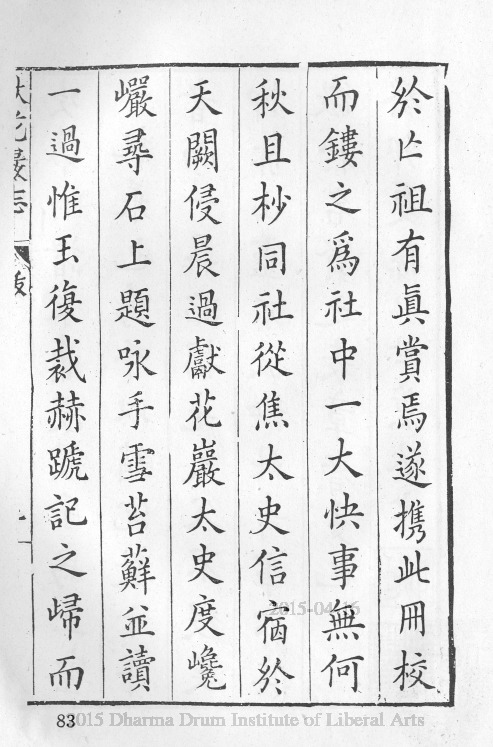 於亡祖有眞賞焉遂攜此冊校
而鏤之爲社中一大快事無何
秋且杪同社從焦太史信宿於
天闕侵晨過獻花巖太史度巉
巗尋石上題咏手雪苔蘚並讀
一過惟玉復裁赫蹏記之歸而
獻花巖志
跋
83
2015-04-16
2015 Dharma Drum Institute of Liberal Arts